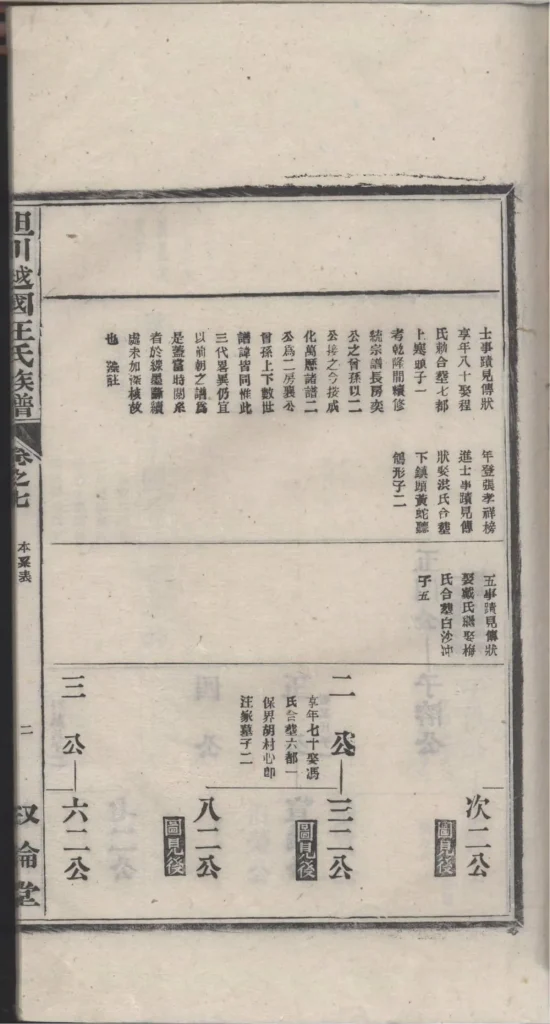 士事蹟見傳狀
享年八十娶程
氏勅合塟七都
上寒頭子一
考乾隆間續修
統宗譜長房奕
公之曾孫以二
公接之今接成
化萬歷諸譜二
公爲二房襄公
曾孫上下數世
譜諱皆同惟此
三代畧異仍宜
以前朝之譜爲
是蓋當時開系
者於線墨聯續
處未加深核故
也
年登張孝祥榜
進士事蹟見傳
狀娶洪氏合塟
下鎮頭黃蛇聽
鴿形子二
五事蹟見傳狀
娶戴氏繼娶梅
氏合塟白沙冲
子五
次二公
圖見後
二公
三二公
圖見後
享年七十娶馮
氏合塟六都一
保界胡村心卽
汪家墓子二
八二公
圖見後
三公
六二公
坦川越國汪氏族譜
卷之七
本系表
二
叙倫堂